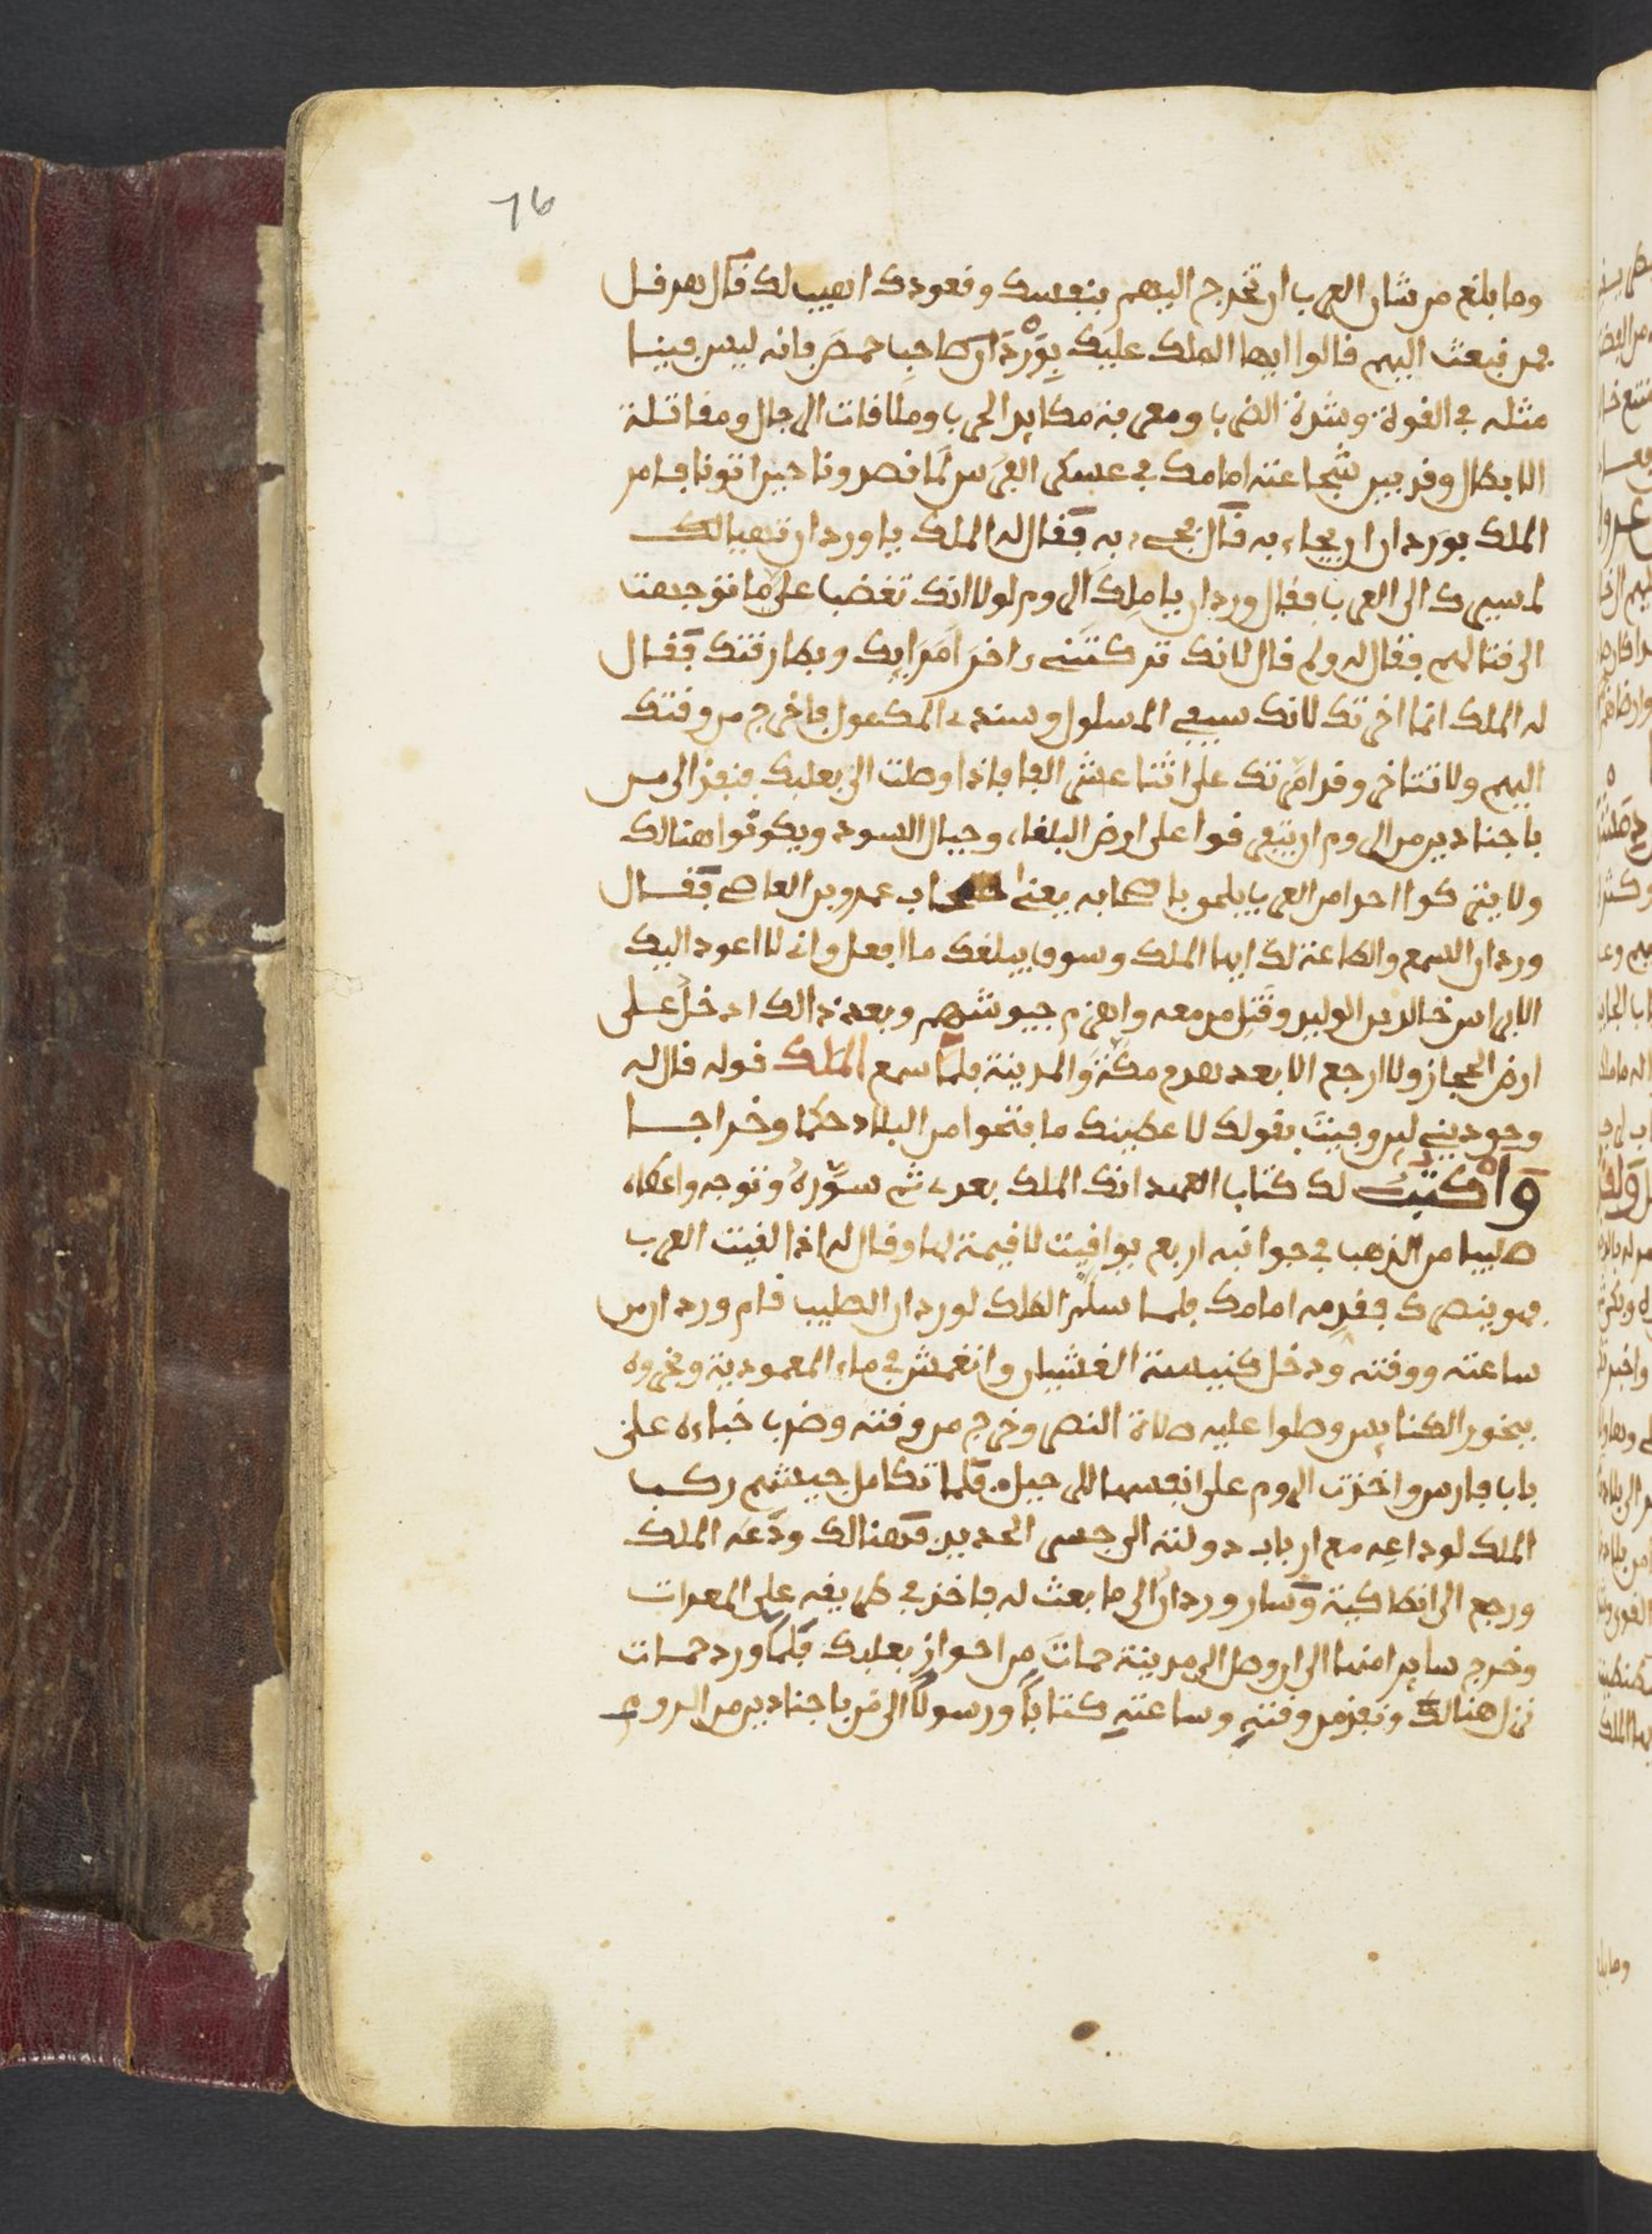 76
وما بلغ من شان العرب ان تخرج اليهم بنفسك وقعودك اهيب لك قال هرقل
فمن نبعث اليهم قالوا ايها الملك عليك بوردان صاحب حمص فانه ليس فينا
مثله في القوة وشدة الضرب ومعرفة مكايد الحرب وملاقات الرجال ومقاتلة
الابطال وقد بين شجاعته امامك في عسكر الفرس لما قصدونا حين اتونا فامر
الملك بوردان ان يجاء به قال فجيء به فقال له الملك يا وردان تهيالك
لمسيرك الى العرب فقال وردان يا ملك الروم لولا انك تغضب علي ما توجهت
الى قتالهم فقال له ولم قال لانك تركتني داخر امرايك وبطارقتك فقال
له الملك انما اخرتك لانك سيفي المسلول وسندي المكعول فاخرج من وقتك
اليهم ولا تتاخر وقد امرتك على اثنا عشر الفا فاذا وصلت الى بعلبك فنفذ الى من
باجنادين من الروم ان يتفرقوا على ارض البلقاء وجبال السود ويكونوا هنالك
ولا يتركوا احدا من العرب يلحق باصحابه يعني اصحاب عمرو بن العاصي فقال
وردان السمع والطاعة لك ايها الملك وسوف يبلغك ما افعل واني لا اعود اليك
الا براس خالد بن الوليد وقتل من معه واهزم جيوشهم وبعد ذالك ادخل على
ارض الحجاز ولا ارجع الا بعد هدم مكة والمدينة فلما سمع الملك قوله قال له
وحق ديني لين وفيت بقولك لا عطينك ما فتحوا من البلاد حكما وخراجا
واكتب لك كتاب العهد انك الملك بعدي ثم سوره وتوجه واعطاه
صليبا من الذهب في جوانبه اربع يواقيت لا قيمة لها وقال له اذا لقيت العرب
فهو ينصرك فقدمه امامك فلما سلم الملك لوردان الصليب قام وردان من
ساعته ووقته ودخل كنيسة الغشيان وانغمش في ماء المعمودية وبخروه
ببخور الكنايس وصلوا عليه صلاة النصر وخرج من وقته وضرب خباءه على
باب فارس واخذت الروم على انفسها للرحيل فلما تكامل جيشهم ركب
الملك لوداعه مع ارباب دولته الى جسر الحديد فهنالك ودعه الملك
ورجع الى انطاكية وسار وردان الى ما بعث له فاخذ في طريقه على المعرات
وخرج سايرا منها الى ان وصل الى مدينة حمات من احواز بعلبك فلما ورد حمات
نزل هنالك ونفذ من وقته وساعته كتابا ورسولا الى من باجنادين من الروم